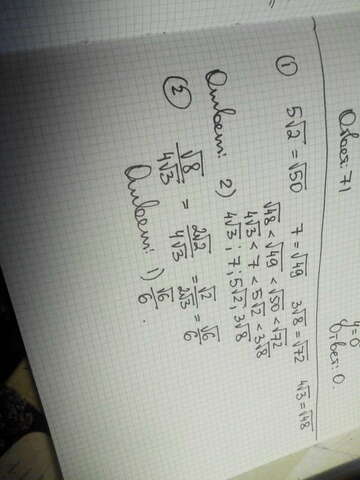 Ответ: 71
y=0
Ответ: 0.
① 5√2 = √50 7 = √49 3√8 = √72 4√3 = √48
√48 < √49 < √50 < √72
4√3 < 7 < 5√2 < 3√8
4√3 ; 7 ; 5√2 ; 3√8
Ответ: 2)
② √8/4√3 = 2√2/4√3 = √2/2√3 = √6/6
Ответ: 1) √6/6.